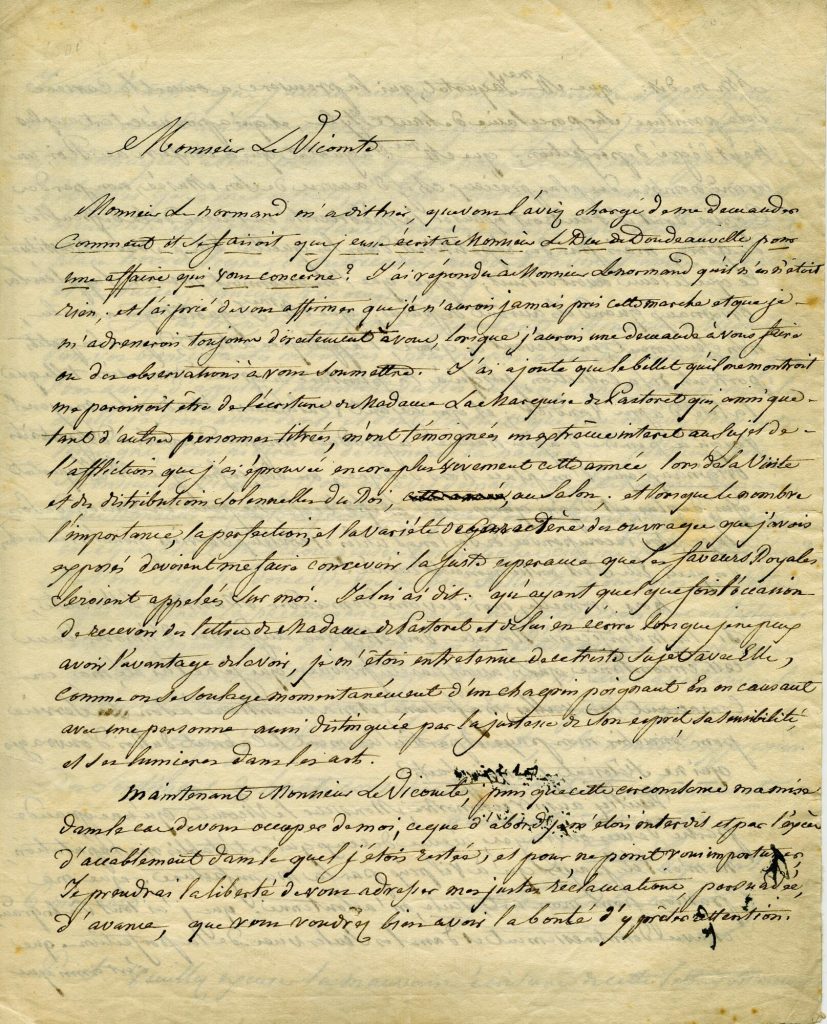 Monsieur Le Vicomte
Monsieur Lenormand m'a dit hier, que vous l'aviez chargé de me demander
Comment il se faisoit que j'eusse écrit à Monsieur Le Duc de Doudeauville pour
une affaire qui vous concerne? J'ai répondu à Monsieur Lenormand qu'il n'en étoit
rien; et l'ai prié de vous affirmer que je n'aurois jamais pris cette marche et que je
m'adresserois toujours directement à vous, lorsque j'aurois une demande à vous faire
ou des observations à vous soumettre. J'ai ajouté que le billet qu'il me montroit
me paroissoit être de l'écriture de Madame La Marquise de Pastoret qui, ainsi que
tant d'autres personnes titrées, m'ont témoignées un extrême interet au sujet de
l'affliction que j'ai éprouvée encore plus vivement cette année, lors de la Visite
et des distributions solennelles du Roi, cette année, au Salon; et lorsque le nombre
l'importance, la perfection, et la variété de caractère des ouvrages que j'avois
exposés devoient me faire concevoir la juste esperance que les faveurs Royales
seroient appelées sur moi. Je lui ai dit: qu'ayant quelque fois l'occasion
de recevoir des lettres de Madame de Pastoret et de lui en écrire lorsque je ne peux
avoir l'avantage de la voir, je m'étois entretenue de ce triste sujet avec Elle,
comme on se soulage momentanément d'un chagrin poignant En en causant
avec une personne aussi distinguée par la justesse de son esprit, sa sensibilité,
et ses lumieres dans les arts.
Maintenant Monsieur Le Vicomte, puis que cette circonstance m'a mise
dans le cas de vous occuper de moi, ce que d'abord je m'étois interdit et par l'excès
d'accâblement dans le quel j'étois restée, et pour ne point vous importuner,
Je prendrai la liberté de vous adresser mes justes réclamations, persuadée,
d'avance, que vous voudrez bien avoir la bonté d'y prêter attention.